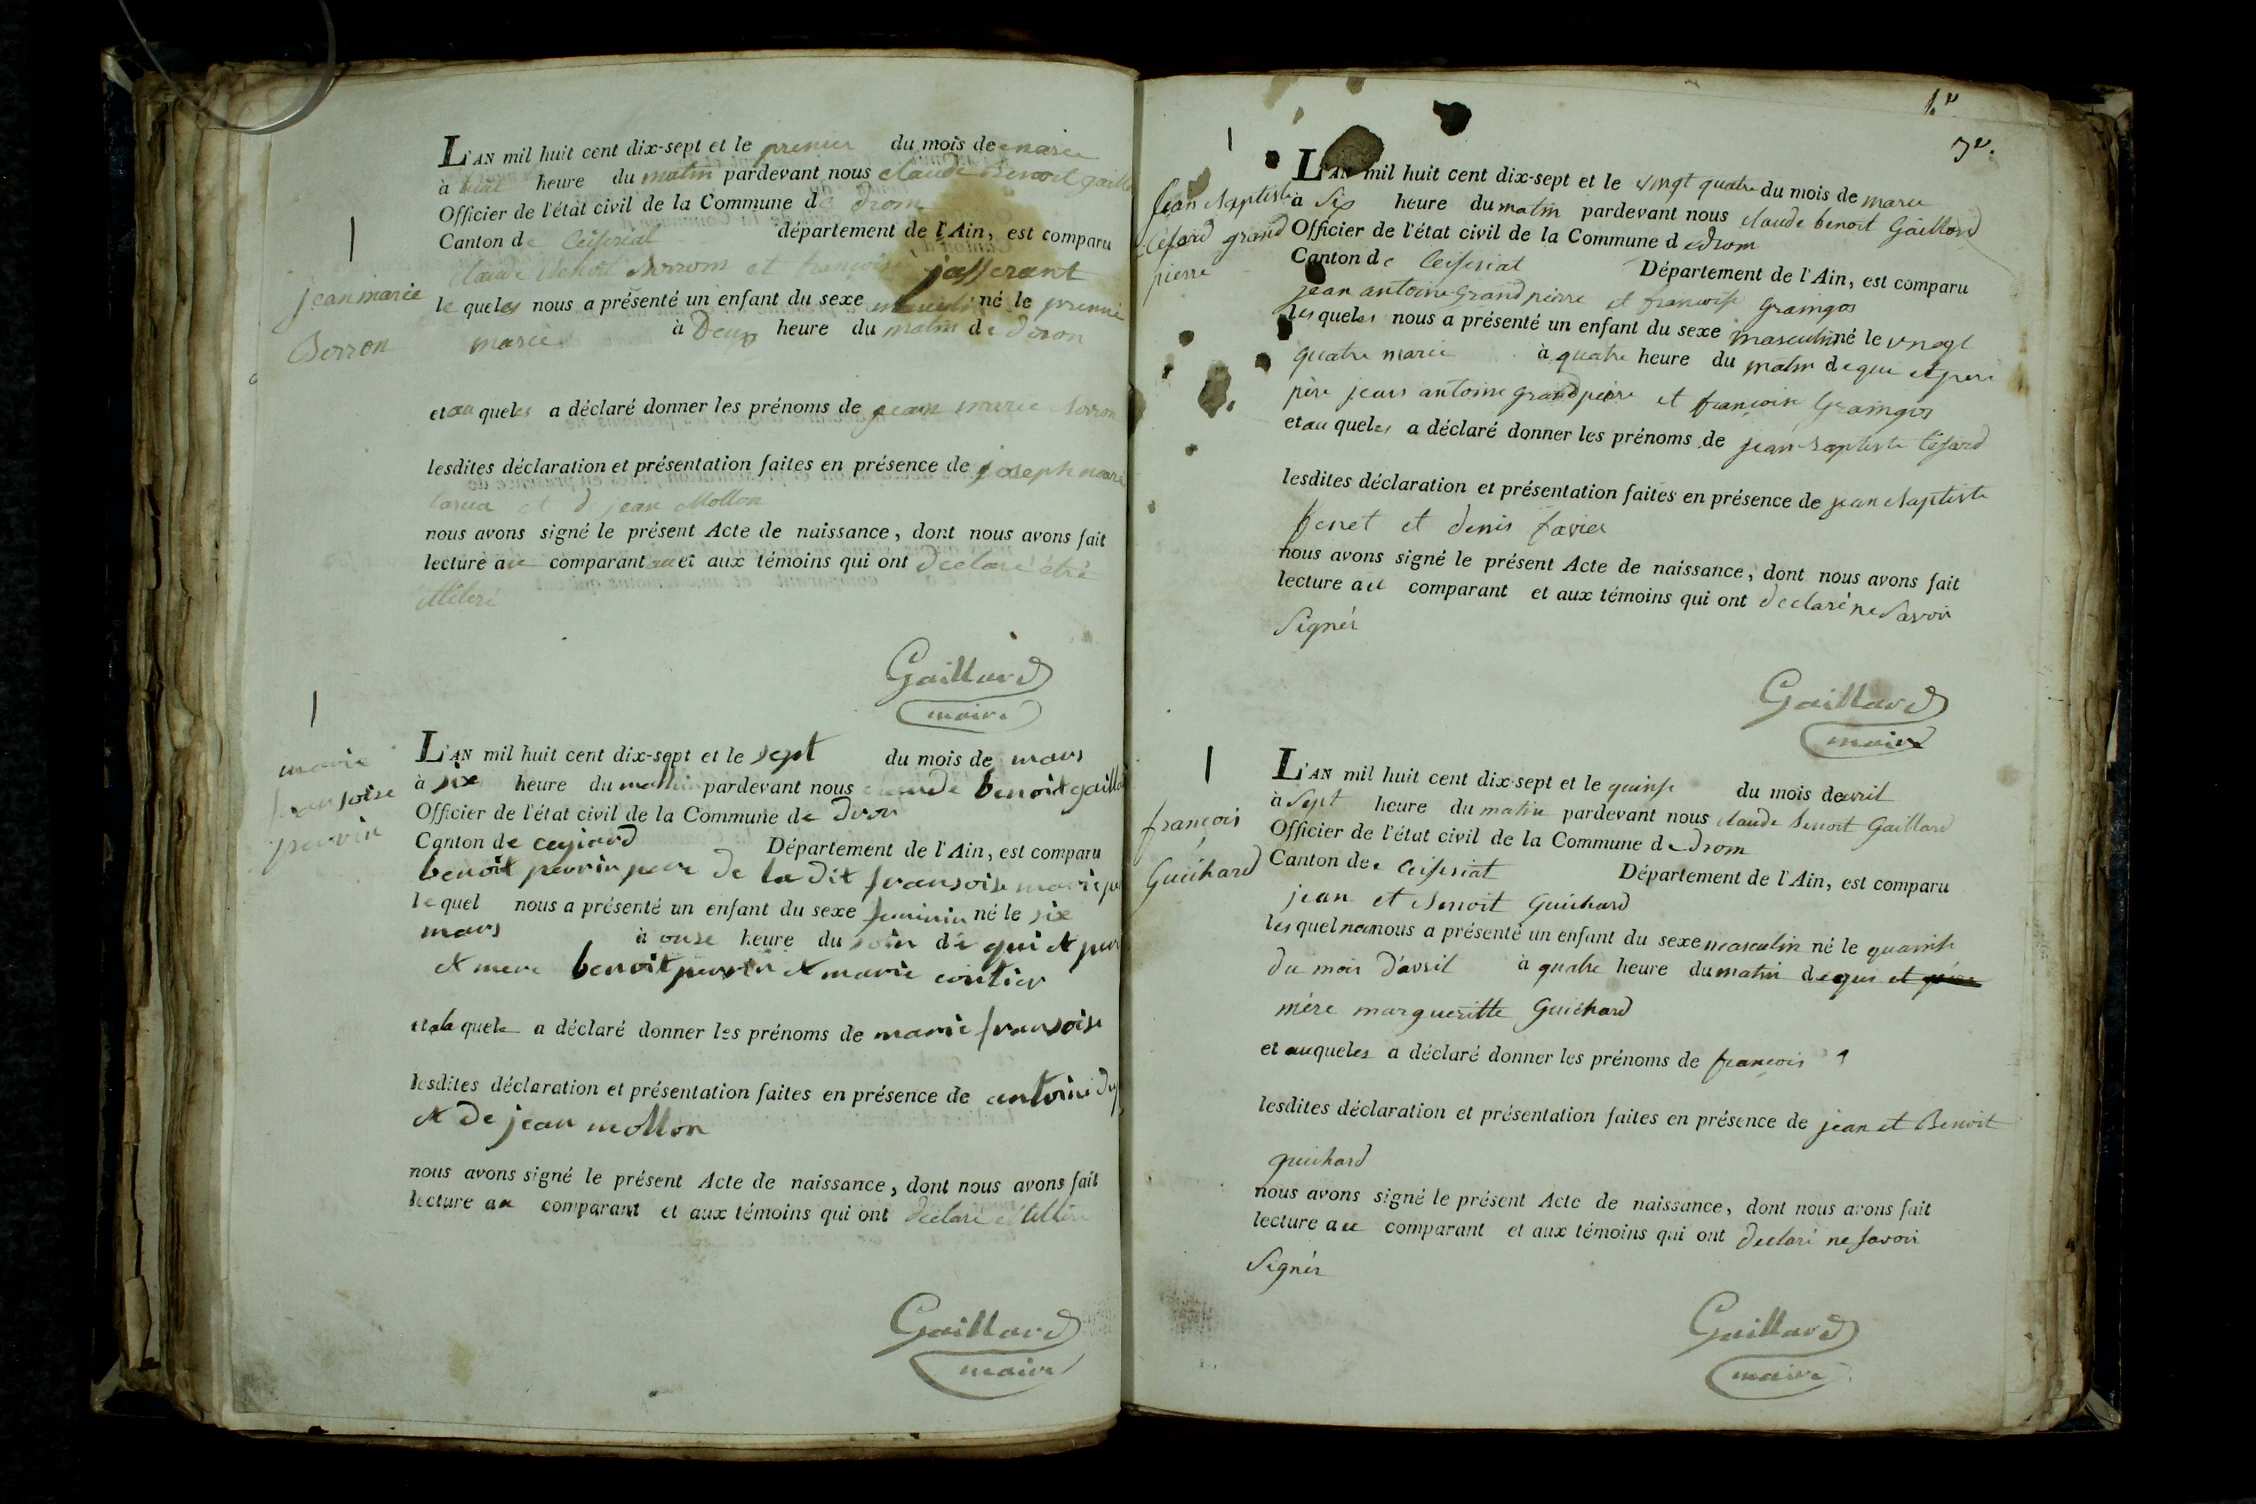 L'AN mil huit cent dix-sept et le premier du mois de marce
à huit heure du matin pardevant nous claude Benoit gaill
Officier de l'état civil de la Commune de Drom
Canton de Ceiseriat département de l'Ain, est comparu
claude Benoit Borron et françoise jasserant
le queles nous a présenté un enfant du sexe masculin né le premié
marce à Deux heure du matin de Drom
et au queles a déclaré donner les prénoms de jean marie Borron
lesdites déclaration et présentation faites en présence de joseph marie
et d jean Mollon
nous avons signé le présent Acte de naissance, dont nous avons fait
lecture au comparant et aux témoins qui ont déclaré être
illiteré
Gaillard
maire
jean marie
Borron
L'AN mil huit cent dix-sept et le sept du mois de mars
à six heure du mattin pardevant nous claude benoit gaillar
Officier de l'état civil de la Commune de dron
Canton de ceyiard Département de l'Ain, est comparu
benoit perrin pere de la dit fransoise marie pe
le quel nous a présenté un enfant du sexe feminin né le six
mars à onse heure du soir de qui et per
et mere benoit perrin et marie
et a la quele a déclaré donner les prénoms de marie fransoise
lesdites déclaration et présentation faites en présence de antoine
et de jean mollon
nous avons signé le présent Acte de naissance, dont nous avons fait
lecture au comparant et aux témoins qui ont declaré
Gaillard
maire
marie
fransoise
perrin
1.er
3e.
L'AN mil huit cent dix-sept et le vingt quatre du mois de marce
à six heure du matin pardevant nous claude benoit Gaillard
Officier de l'état civil de la Commune d edrom
Canton de Ceiseriat Département de l'Ain, est comparu
jean antoine Grandpierre et françoise Graingos
les queles nous a présenté un enfant du sexe masculin né le vingt
quatre marce à quatre heure du matin de que et peri
père jean antoine grandpierre et françoise Graingos
et au queles a déclaré donner les prénoms de jean-baptiste Césard
lesdites déclaration et présentation faites en présence de jean baptiste
fenet et denis favier
nous avons signé le présent Acte de naissance, dont nous avons fait
lecture au comparant et aux témoins qui ont declaré ne savoir
Signér
Gaillard
maire
jean baptiste
Césard grand
pierre
L'AN mil huit cent dix-sept et le quinse du mois de avril
à sept heure du matin pardevant nous claude benoit Gaillard
Officier de l'état civil de la Commune de drom
Canton de Ceiseriat Département de l'Ain, est comparu
jean et benoit Guichard
les quel nanous a présenté un enfant du sexe masculin né le quainse
du mois d'avril à quatre heure du matin de qui et père
mère margueritte Guichard
et auqueles a déclaré donner les prénoms de françois
lesdites déclaration et présentation faites en présence de jean et Benoit
guichard
nous avons signé le présent Acte de naissance, dont nous avons fait
lecture au comparant et aux témoins qui ont declaré ne savoir
Signér
Gaillard
maire
françois
Guichard